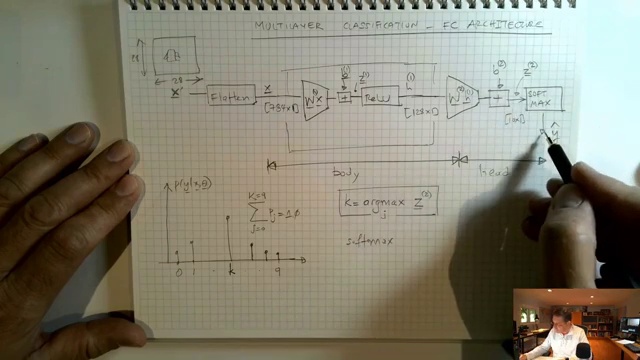 MULTILAYER CLASSIFICATION - FC ARCHITECTURE
28
28
x' Flatten x [784x1] W⁽¹⁾x b⁽¹⁾ + z⁽¹⁾ ReLU h⁽¹⁾ [128x1] W⁽²⁾h⁽¹⁾ b⁽²⁾ + z⁽²⁾ [10x1] SOFT MAX
ŷ
body head
p(y|x,θ)
K=9 Σ j=0 Pj = 1.0
K = argmax j z⁽²⁾
softmax
0 1 . k 9